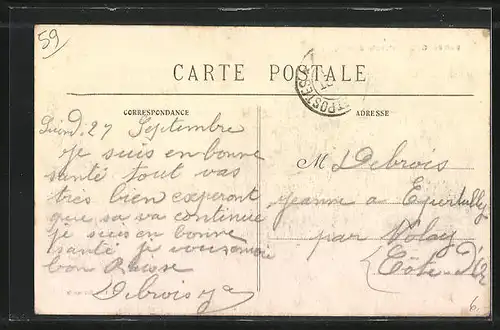 59
CARTE POSTALE
CORRESPONDANCE
ADRESSE
POSTES
Lundi 27 Septembre
je suis en bonne
santé tout vas
tres bien experont
que sa va continue
je suis en bonne
santé je vous
bon
Debrois
M Debrois
jeanne a Epertully
par Nolay
Côte-D'Or
6.